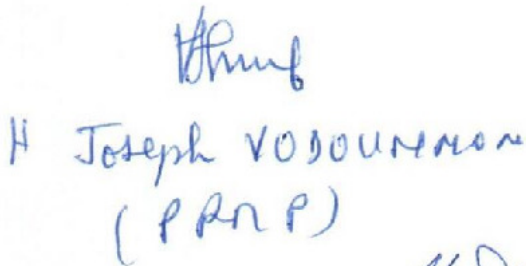 H Joseph VODOUNNON
(PRMP)